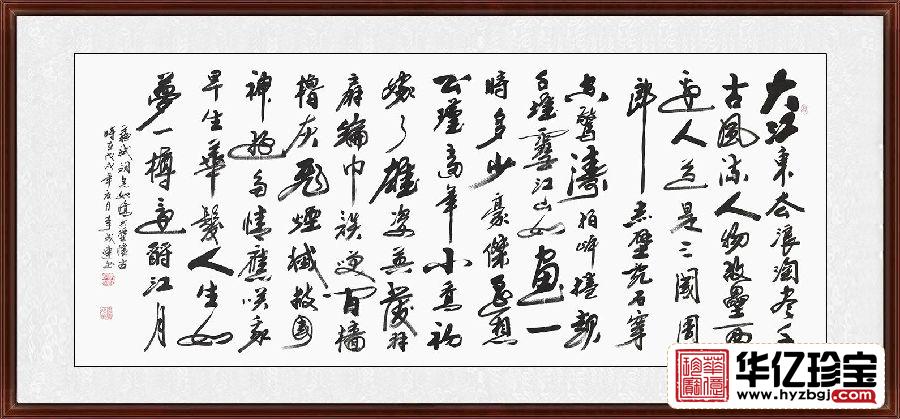 大江東去浪淘盡千
古風流人物故壘西
邊人道是三國周
郎赤壁亂石穿
空驚濤拍岸捲起
千堆雪江山如畫一
時多少豪傑遙想
公瑾當年小喬初
嫁了雄姿英發羽
扇綸巾談笑間檣
櫓灰飛煙滅故國
神遊多情應笑我
早生華髮人生如
夢一樽還酹江月
蘇軾詞念奴嬌赤壁懷古
時在戊戌年
华亿珍宝
www.hyzbgj.com